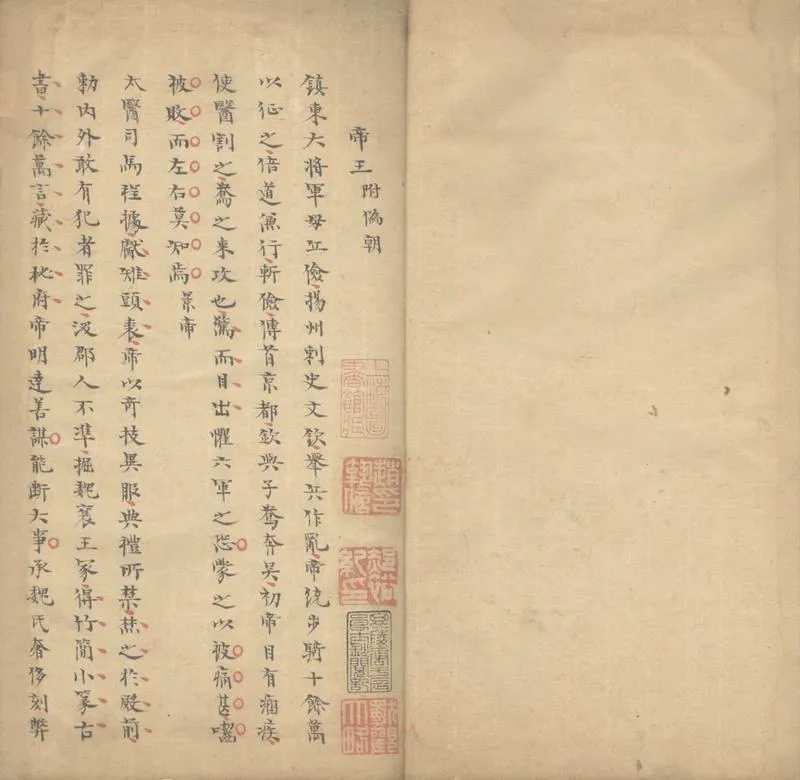 帝王附偽朝
鎮東大將軍毋丘儉揚州刺史文欽舉兵作亂帝統步騎十餘萬
以征之倍道兼行斬儉傳首京都欽與子鴦奔吳初帝目有瘤疾
使醫割之鴦之来攻也驚而目出懼六軍之恐蒙之以被痛甚嚙
被敗而左右莫知焉景帝
太醫司馬程據獻雉頭裘帝以奇技異服典禮所禁焚之於殿前
勅内外敢有犯者罪之汲郡人不準掘魏襄王冢得竹簡小篆古
書十餘萬言藏於秘府帝明達善謀能断大事承魏氏奢侈刻弊